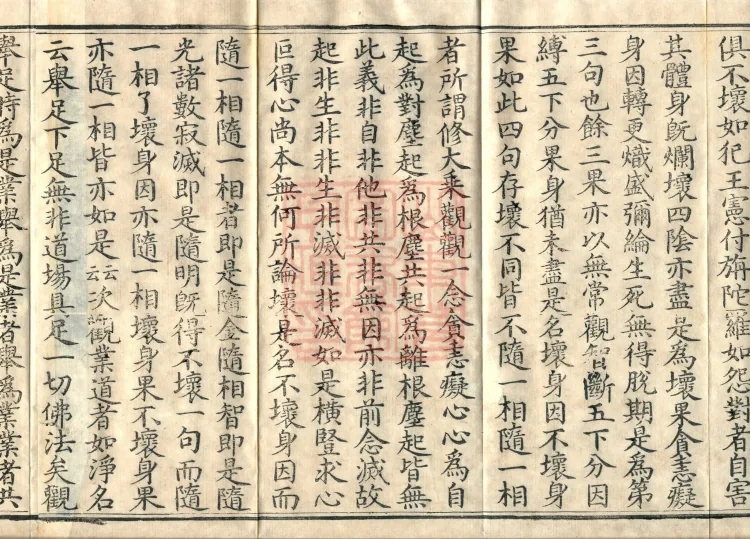 俱不壞如犯王憲付旃陀羅如怨對者自害
其體身既爛壞四陰亦盡是為壞果貪恚癡
身因轉更熾盛彌綸生死無得脫期是為第
三句也餘三果亦以無常觀智斷五下分因
縛五下分果身猶未盡是名壞身因不壞身
果如此四句存壞不同皆不隨一相隨一相
者所謂修大乘觀觀一念貪恚癡心心為自
起為對塵起為根塵共起為離根塵起皆無
此義非自非他非共非無因亦非前念滅故
起非生非非生非滅非非滅如是橫豎求心
叵得心尚本無何所論壞是名不壞身因而
隨一相隨一相者即是隨金隨相智即是隨
光諸數寂滅即是隨明既得不壞一句而隨
一相了壞身因亦隨一相壞身果不壞身果
亦隨一相皆亦如是云云次觀業道者如淨名
云舉足下足無非道場具足一切佛法矣觀
舉足時為是業舉為是業者舉為業業者共